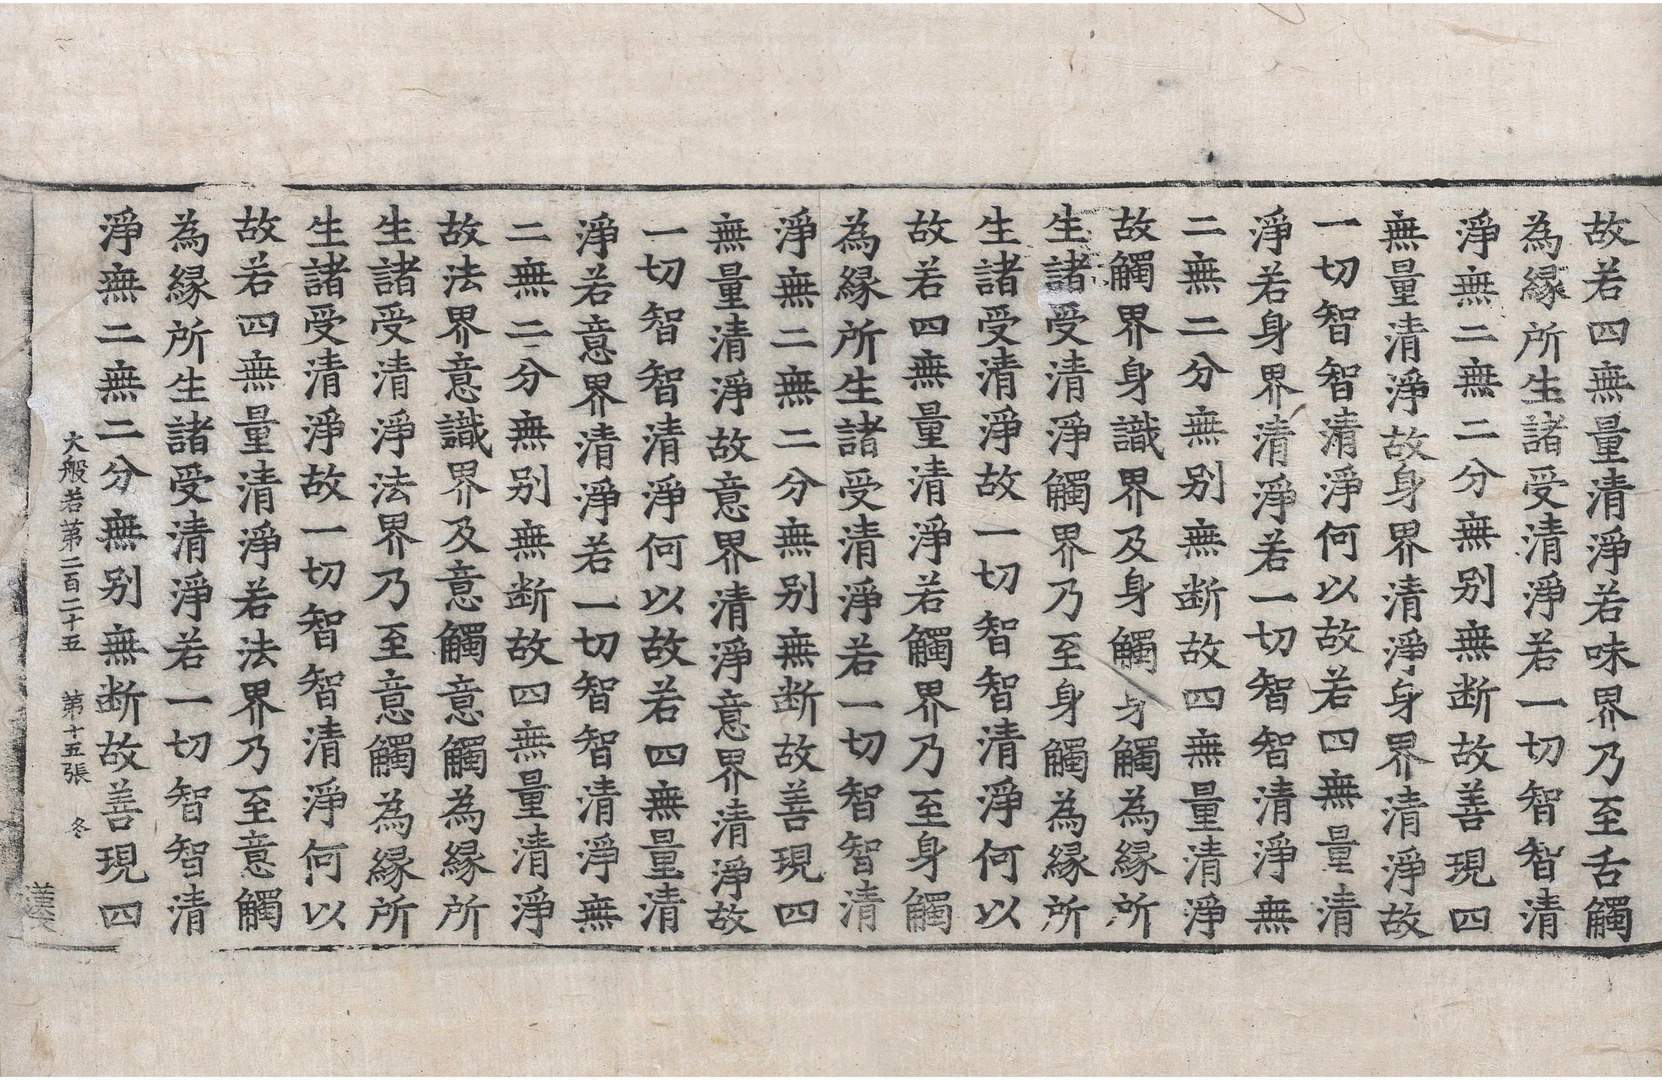 故若四無量清淨若味界乃至舌觸
為緣所生諸受清淨若一切智智清
淨無二無二分無别無断故善現四
無量清淨故身界清淨身界清淨故
一切智智清淨何以故若四無量清
淨若身界清淨若一切智智清淨無
二無二分無别無断故四無量清淨
故觸界身識界及身觸身觸為緣所
生諸受清淨觸界乃至身觸為緣所
生諸受清淨故一切智智清淨何以
故若四無量清淨若觸界乃至身觸
為緣所生諸受清淨若一切智智清
淨無二無二分無别無断故善現四
無量清淨故意界清淨意界清淨故
一切智智清淨何以故若四無量清
淨若意界清淨若一切智智清淨無
二無二分無别無断故四無量清淨
故法界意識界及意觸意觸為緣所
生諸受清淨法界乃至意觸為緣所
生諸受清淨故一切智智清淨何以
故若四無量清淨若法界乃至意觸
為緣所生諸受清淨若一切智智清
淨無二無二分無别無断故善現四
大般若第二百二十五 第十五張 冬